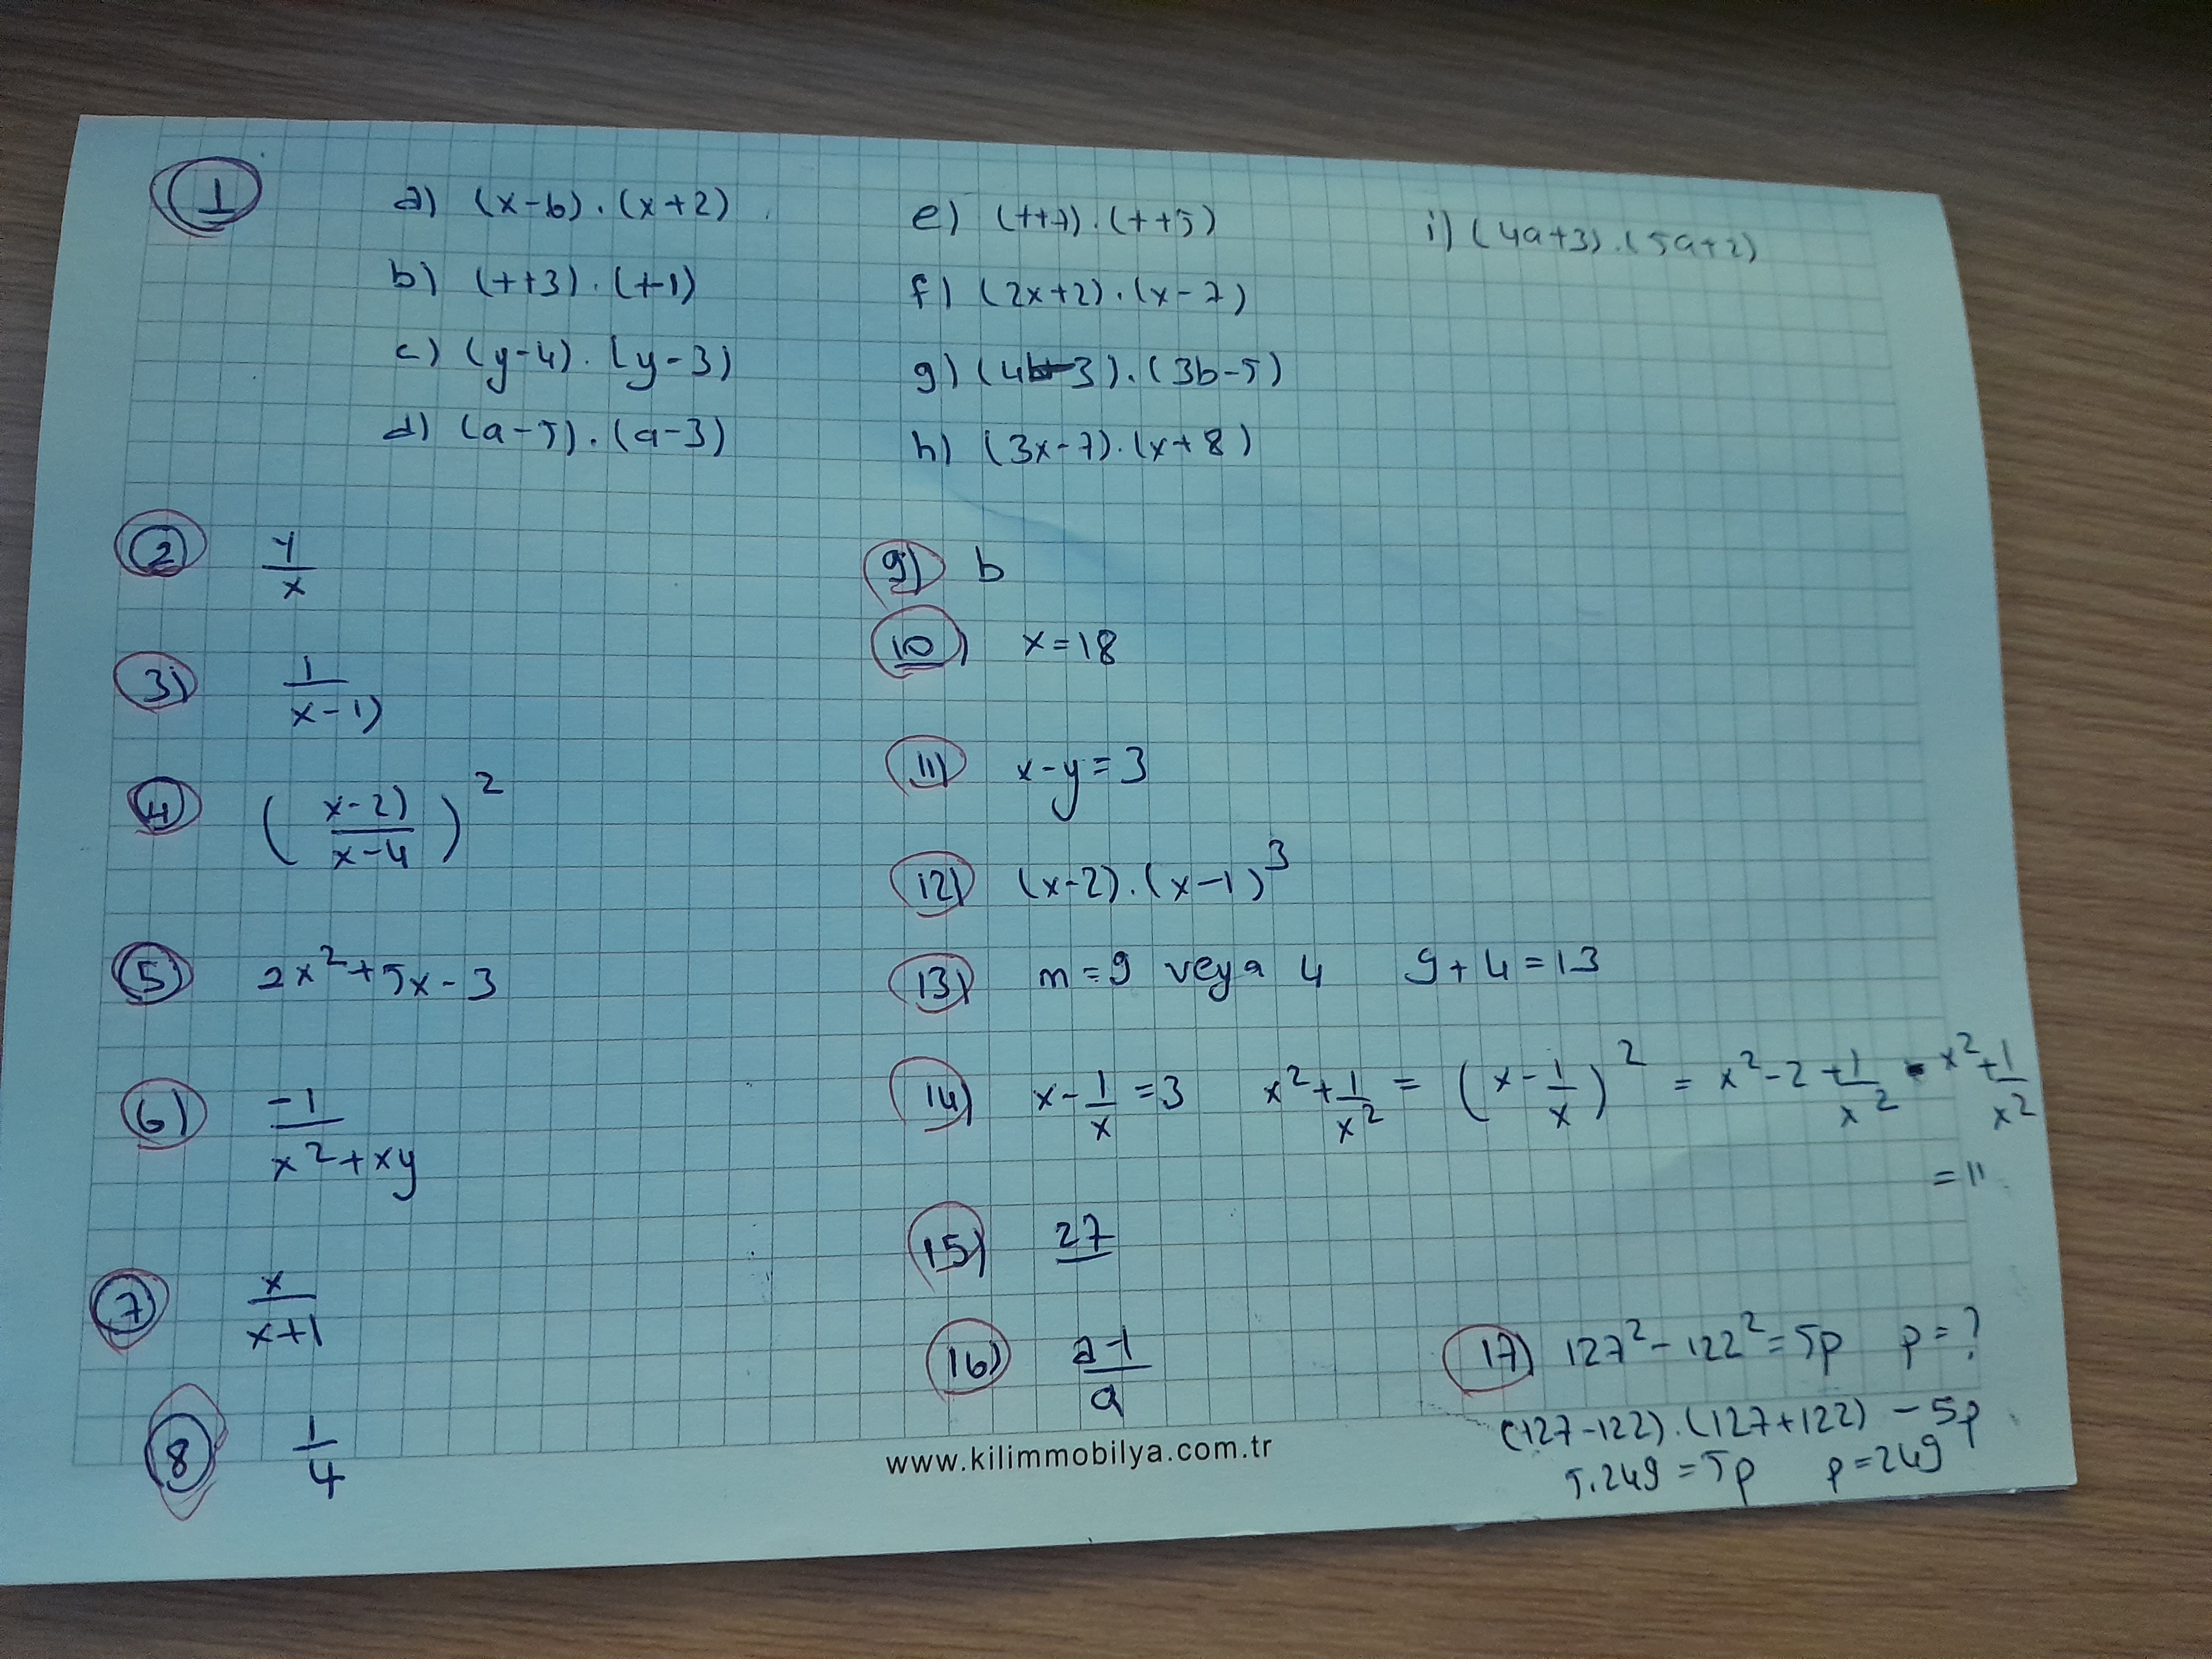 1
a) (x-b).(x+2)
b) (t+3).(t-1)
c) (y-4).(y-3)
d) (a-5).(a-3)
e) (t+1).(t+5)
f) (2x+2).(x-7)
g) (4b-3).(3b-5)
h) (3x-7).(x+8)
i) (4a+3).(5a+2)
2) y/x
3) 1/(x-1)
4) ((x-2)/(x-4))²
5) 2x²+5x-3
6) -1/(x²+xy)
7) x/(x+1)
8 1/4
9) b
10) x=18
11) x-y=3
12) (x-2).(x-1)³
13) m=9 veya 4 9+4=13
14) x-1/x=3 x²+1/x² = (x-1/x)² = x²-2+1/x² x²+1/x²
=11
15) 27
16) (a-1)/a
17) 127²-122²=5p p=?
(127-122).(127+122)-5p
5.249=5p p=249
www.kilimmobilya.com.tr